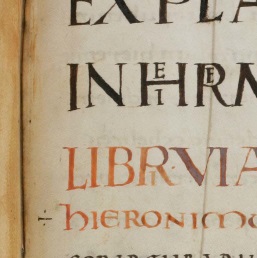 EXPLA
INHIEREM
LIBRI·VIA
hIERONIMO